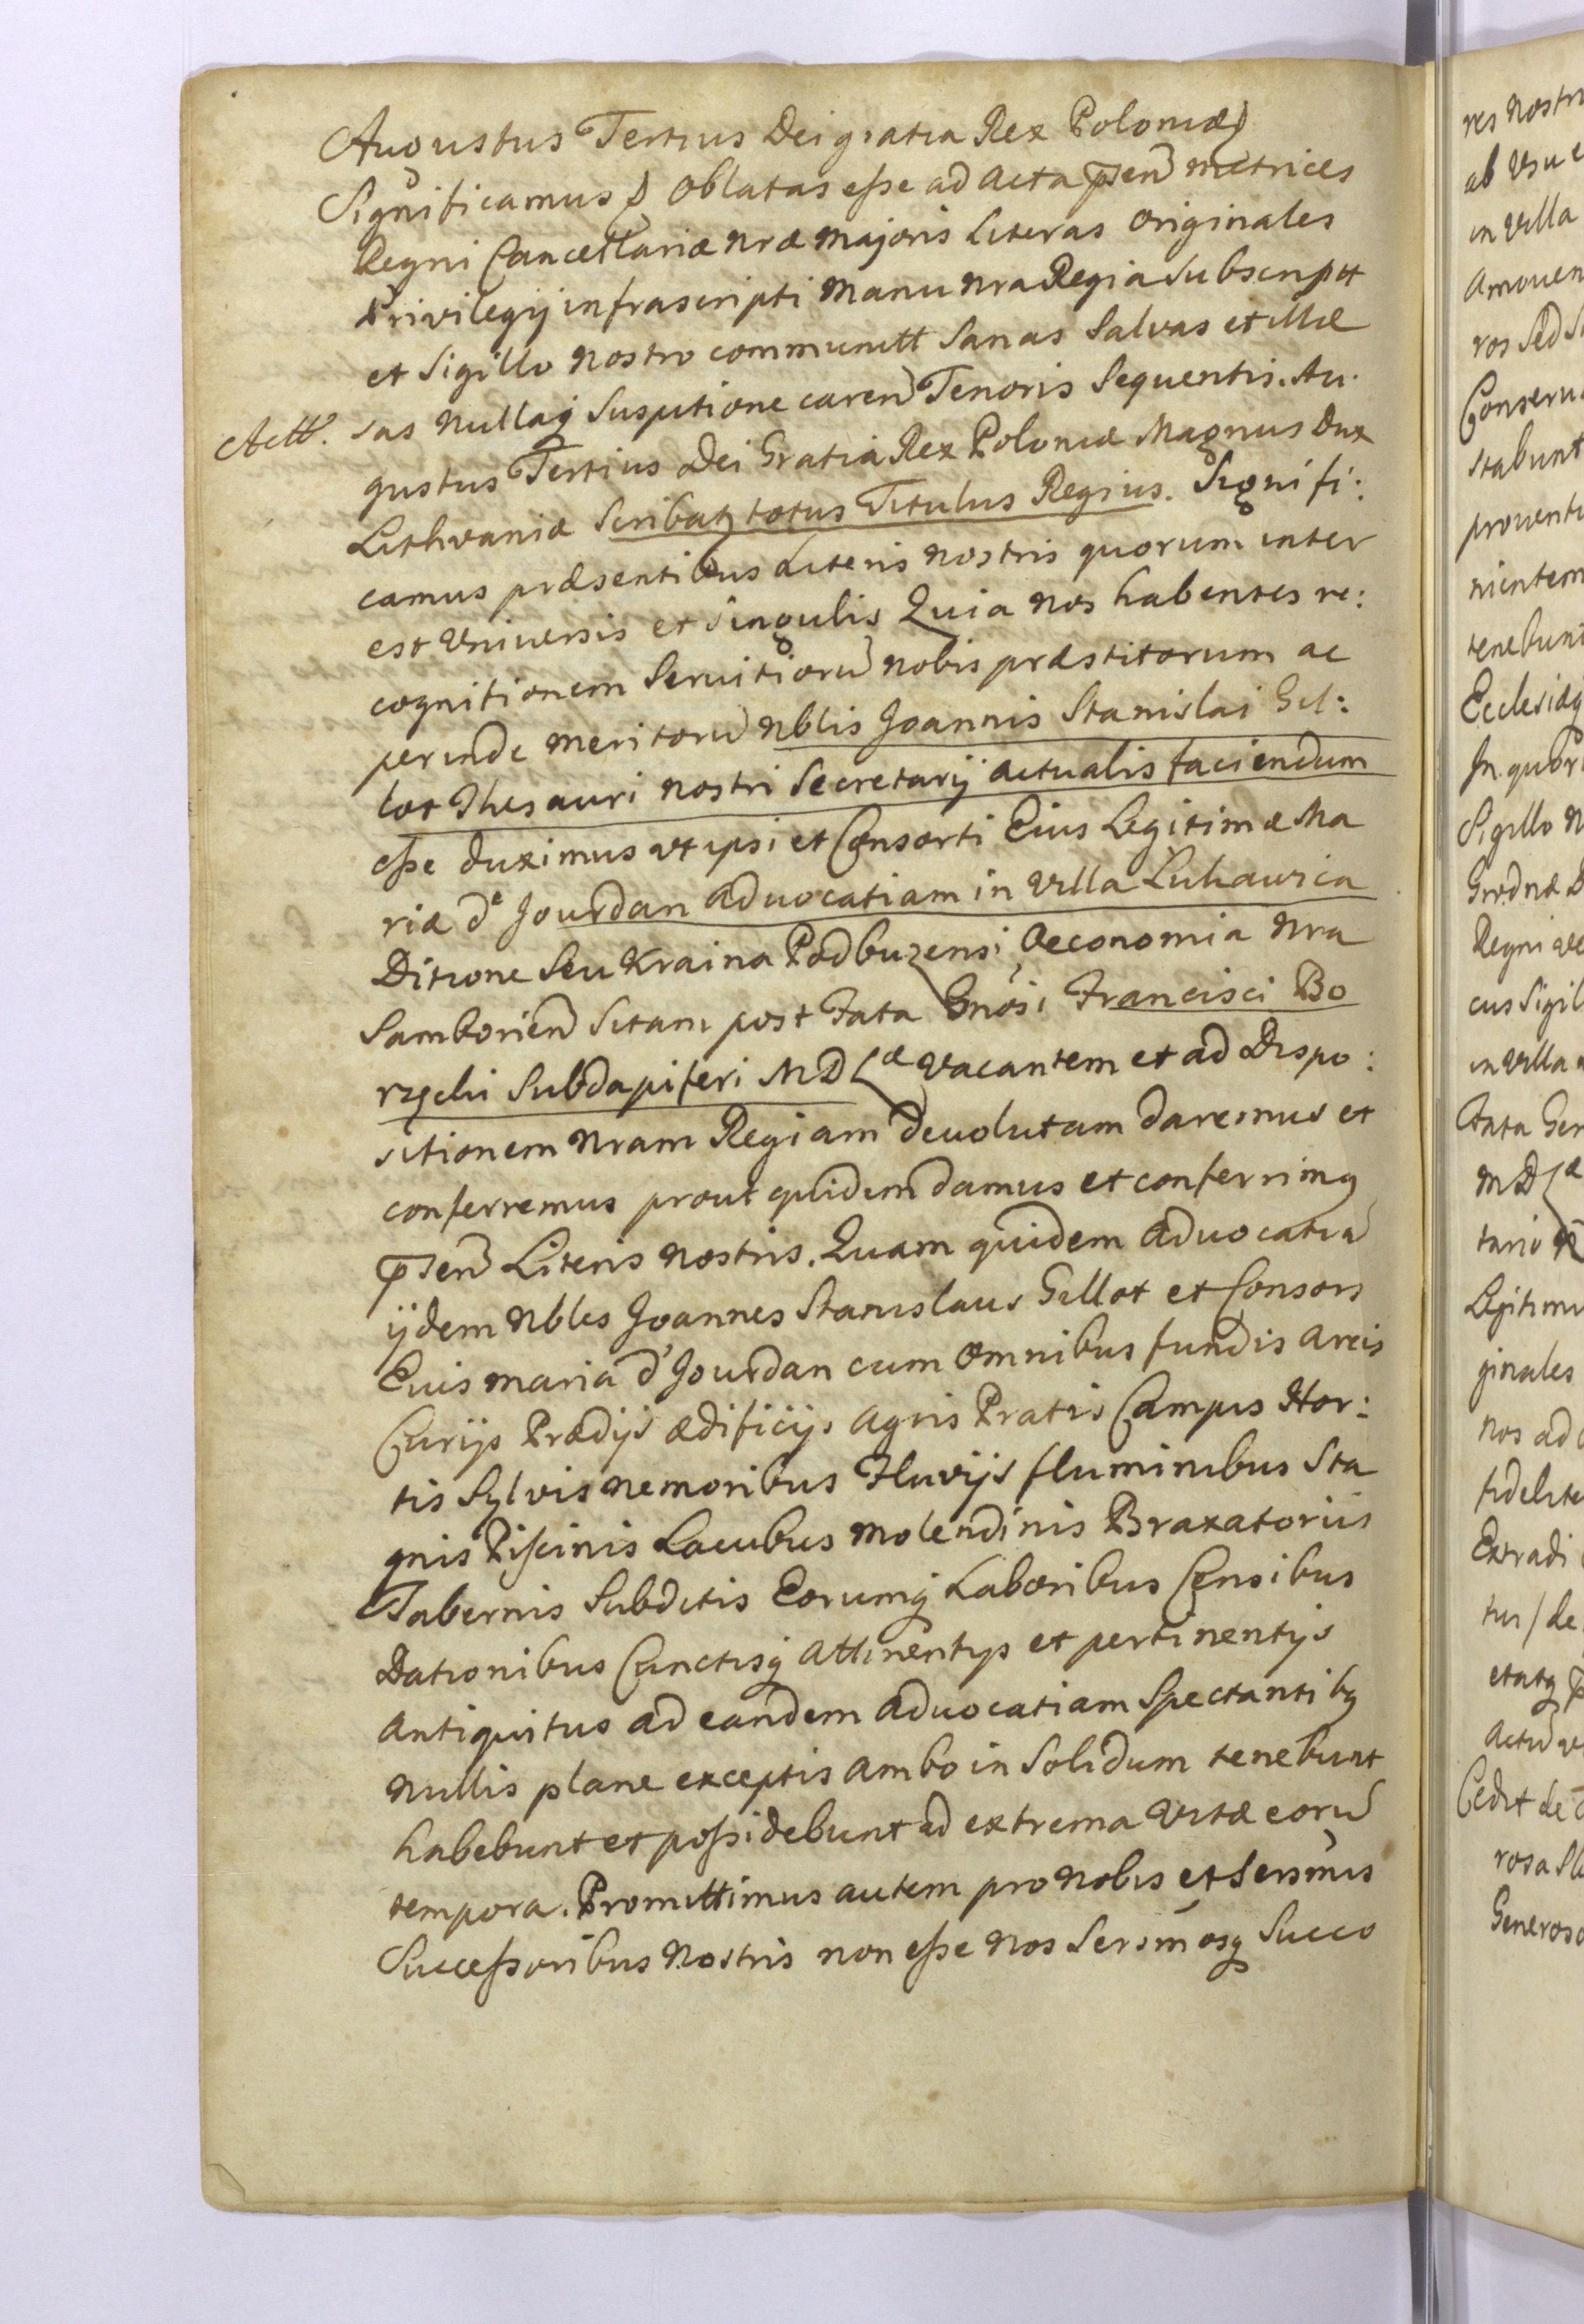 Augustus Tertius Dei gratia Rex Poloniæ
Significamus Oblatas eße ad Acta pñen metrices
Regni Cancellariæ nræ Majoris Literas Originales
Privilegij infrascripti Manu nra Regia Subscriptt
et Sigillo nostro communitt Sanas Salvas et illæ
Actt. sas nullaq Suspitione caren Tenoris Sequentis. Au.
gustus Tertius Dei Gratia Rex Poloniæ Magnus Dux
Lithvaniæ Scribatz totus Titulus Regius. Signifi:
camus præsentibus Literis nostris quorum inter
est Vniversis et Singulis Quia nos habentes re:
cognitionem Servitioru nobis præstitorum ac
perinde meritoru Nblis Joannis Stanislai Gil:
lot Thesauri nostri Secretarij actualis faciendum
eße duximus vt ipsi et Consorti Eius Legitimæ Ma
riæ de Jourdan advocatiam in Villa Luhawica
Ditione Seu Kraina Podbuzensi Oeconomia Nra
Samborien Sitam post Fata Gnosi Francisci Bo
rzęcki Subdapiferi M D Læ Vacantem et ad Dispo:
sitionem Nram Regiam devolutam daremus et
conferremus prout quidem damus et conferrimq
pñen Literis nostris. Quam quidem Advocatia
ijdem Nbles Joannes Stanislaus Gillot et Consors
Eius Maria d'Jourdan cum Omnibus fundis Areis
Curijs Prædijs ædificijs Agris Pratis Campis Hor:
tis Sylvis nemoribus Fluvijs fluminibus Sta
gnis Piscinis Lacubus Molendinis Braxatoriis
Tabernis Subditis Eorumq Laboribus Censibus
Dationibus Cunctisq Attinentijs et pertinentijs
Antiquitus ad eandem Advocatiam Spectantibq
Nullis plane exceptis Ambo in Solidum tenebunt
habebunt et poßidebunt ad extrema Vitæ eoru
tempora. Promittimus autem pro Nobis et Sersmis
Succeßoribus Nostris non eße nos Sersmosq Succo
res nostr
ab Vsu e
in Villa
Amoven
ros Sed S
Conserva
stabunt
provent
nientem
tenebunt
Ecclesiæq
Sigillo N
Grodnæ D
Regni
cus Sigil
in Villa
Fata Gen
M D Læ
Legitim
ginales
nos ad
fidelite
Actu
Cedit de
Generos